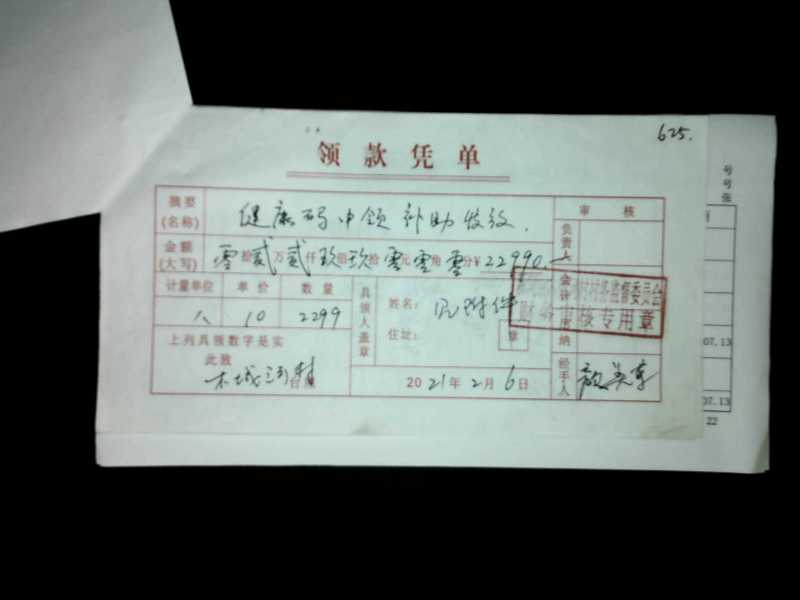 625.
领款凭单
摘要(名称) 健康码申领补助发放.
审核
金额(大写) 零拾贰万贰仟玖佰玖拾零元零角零分¥22990.—
负责人
计量单位 单价 数量
人 10 2299
具领人盖章
姓名: 见附件
住址:
章
会计 出纳
村村务监督委员会
财务审核专用章
上列具领数字是实
此致
木城涧村 台照
2021年2月6日
经手人
号
号
张
07.13
07.13
22